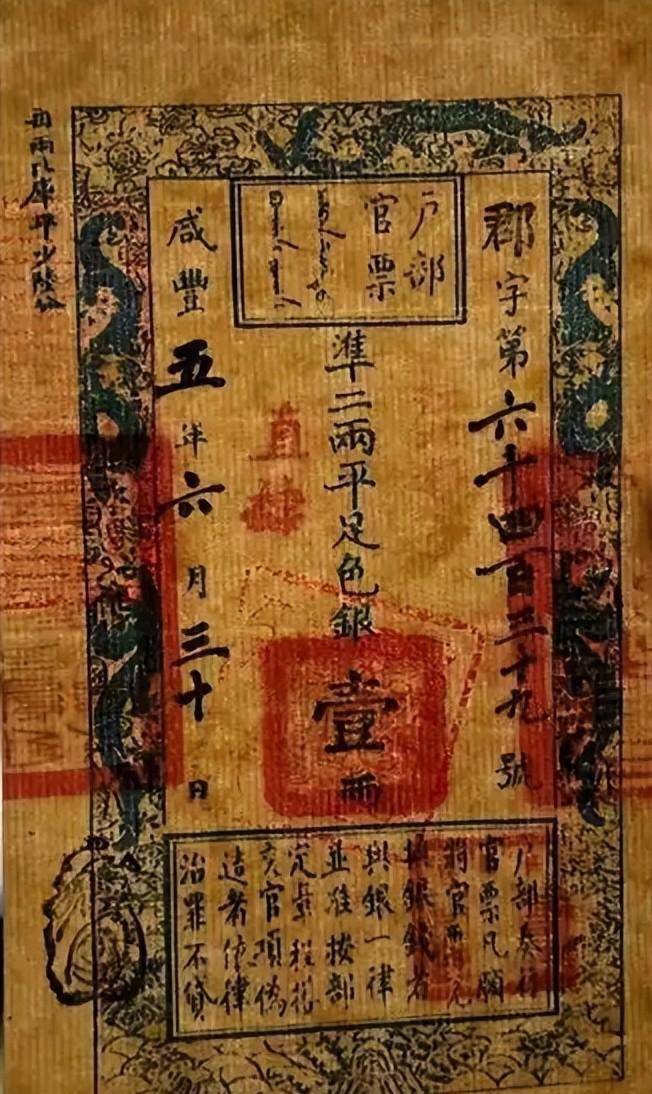 户部
官票
郡字第六千四百三十九號
準二兩平足色銀壹兩
直隸
咸豐五年六月三十日
户部奏行
官票凡願
將官票兌
換銀錢者
與銀一律
並准按部
定章程搭
交官項偽
造者依律
治罪不貸
每兩比庫平少陸分